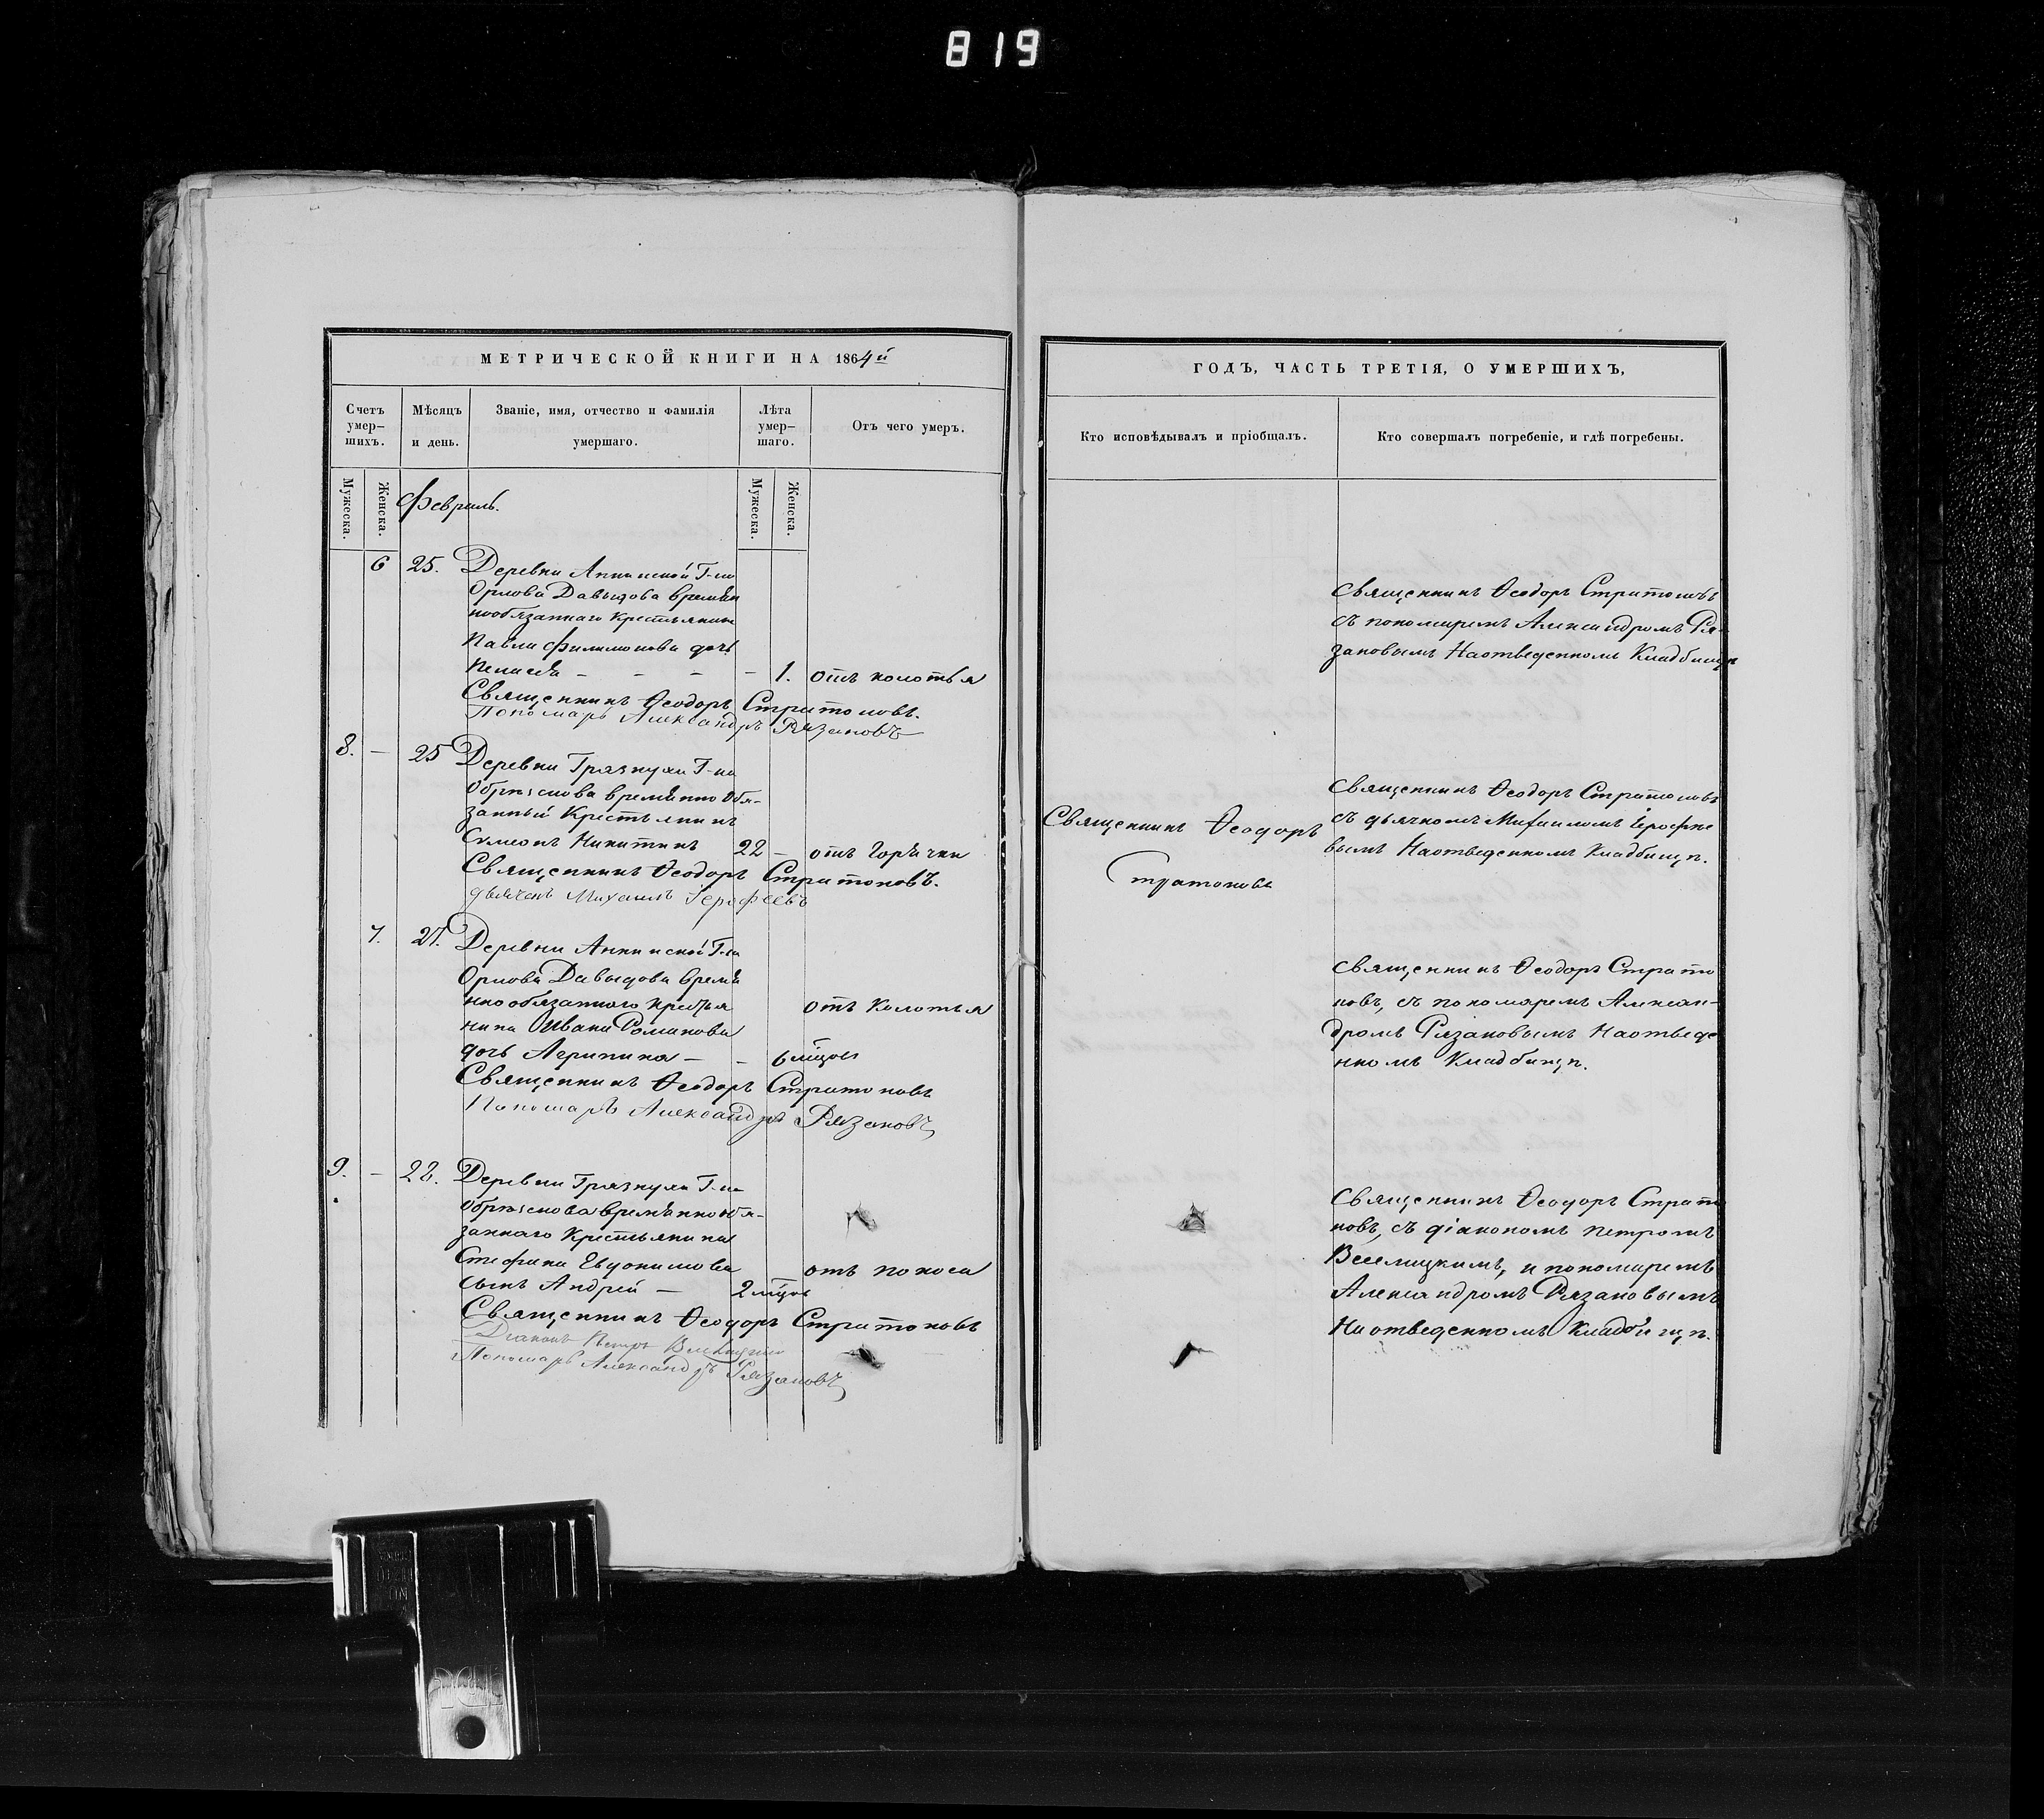 819
МЕТРИЧЕСКОЙ КНИГИ НА 1864й
Счетъ умер-шихъ.
Мѣсяцъ и день.
Званіе, имя, отчество и фамилія умершаго.
Лѣта умер-шаго.
Отъ чего умеръ.
Мужеска.
Женска.
Мужеска.
Женска.
Февраль.
6 25. Деревни Аннинской Г-на
Орлова Давыдова времен
нообязаннаго Крестьянина
Павла Филимонова дочь
Пелагея - - - - 1. отъ колотья
Священникъ Ѳеодоръ Стратоновъ.
Пономарь Александръ Рязановъ
8. - 25 Деревни Грязнухи Г-на
Образцова временно Обя-
занный Крестьянинъ
Сѵмеонъ Никитинъ 22 - отъ Горячки
Священникъ Ѳеодоръ Стратоновъ.
дьячекъ Михаилъ Іерофеевъ
7. 27. Деревни Аннинской Г-на
Орлова Давыдова времен
нно обязаннаго крестья
нина Ивана Романова отъ Колотья
дочь Агрипина - - 6 мѣцов
Священникъ Ѳеодоръ Стратоновъ
Пономарь Александръ Рязановъ
9. - 28. Деревни Грязнухи Г-на
Образцова временно Обя-
заннаго Крестьянина
Стефана Евдокимова отъ поноса
сынъ Андрей - 2 мѣцов
Священникъ Ѳеодоръ Стратоновъ
Діаконъ Петръ
Пономарь Александръ Рязановъ
ГОДЪ, ЧАСТЬ ТРЕТІЯ, О УМЕРШИХЪ,
Кто исповѣдывалъ и пріобщалъ.
Кто совершалъ погребеніе, и гдѣ погребены.
Священникъ Ѳеодоръ Стратоновъ
съ пономаремъ Александромъ Ря-
зановымъ На отведенномъ Кладбищѣ
Священникъ Ѳеодоръ
Стратоновъ
Священникъ Ѳеодоръ Стратоновъ
съ дьячкомъ Михаиломъ Іерофее
вымъ На отведенномъ Кладбищѣ.
Священникъ Ѳеодоръ Страто
новъ, съ пономаремъ Алексан-
дромъ Рязановымъ На отведе
нномъ Кладбищѣ.
Священникъ Ѳеодоръ Страто
новъ, съ діакономъ Петромъ
Веселицкимъ, и пономаремъ
Александромъ Рязановымъ
На отведенномъ Кладбищѣ.